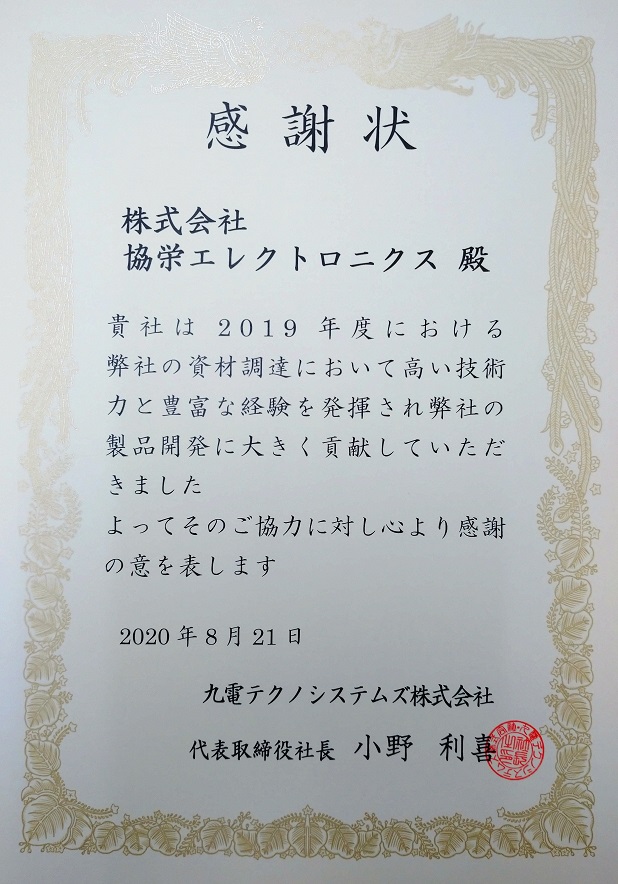 感謝状
株式会社
協栄エレクトロニクス 殿
貴社は2019年度における
弊社の資材調達において高い技術
力と豊富な経験を発揮され弊社の
製品開発に大きく貢献していただ
きました
よってそのご協力に対し心より感謝
の意を表します
2020年8月21日
九電テクノシステムズ株式会社
代表取締役社長 小野 利喜